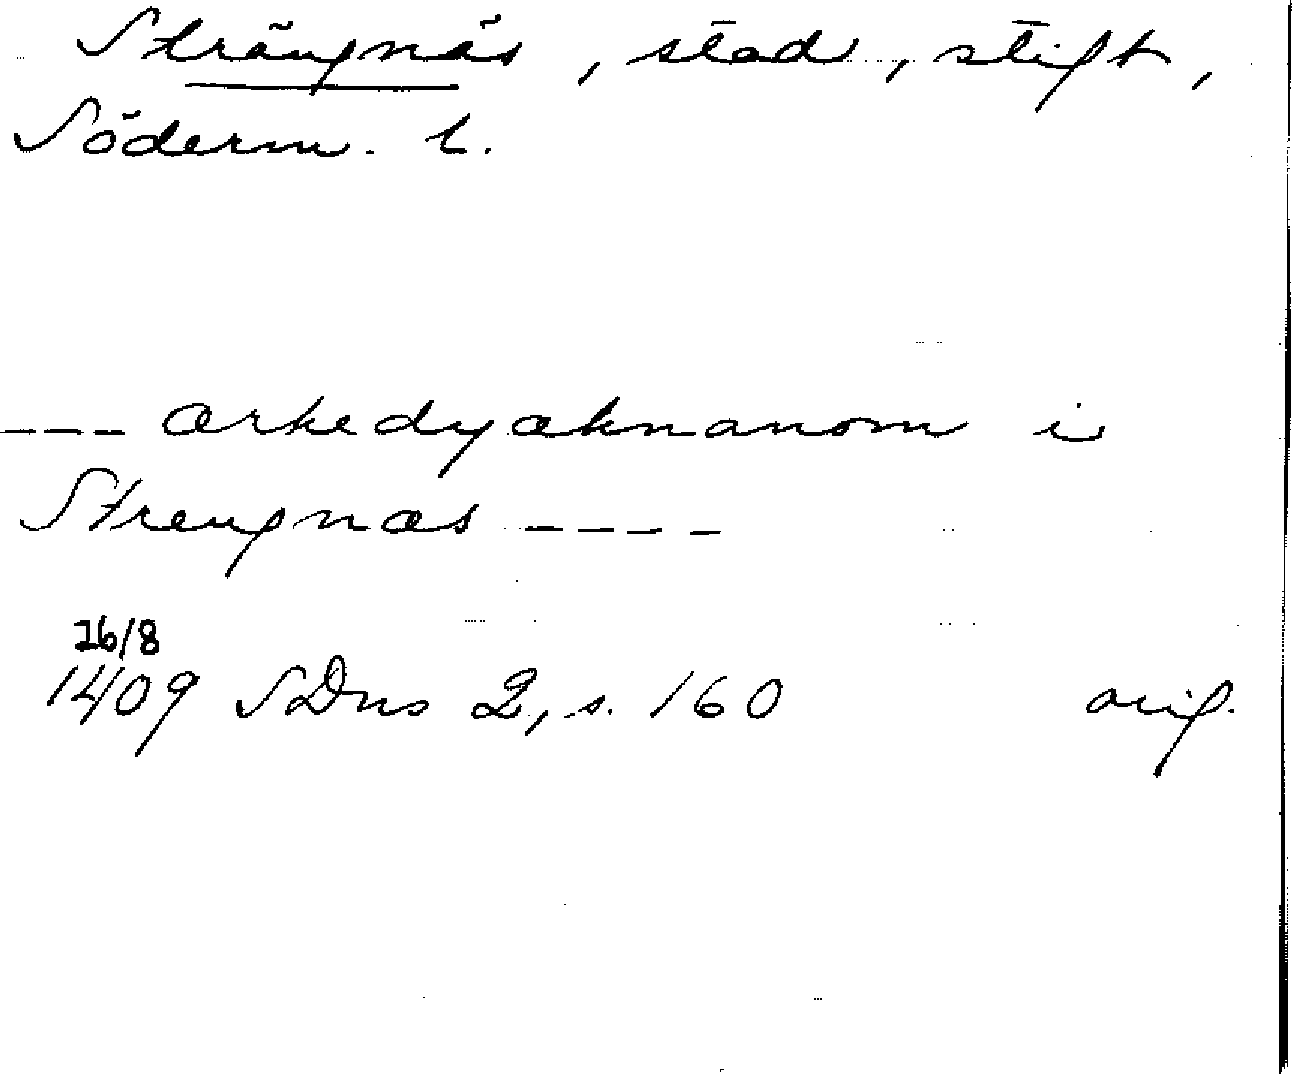 Strängnäs, stad, stift,
Söderm. l.
--- ærkedyæknanom i
Strengnæs ----
16/8
1409 SDns 2, s. 160 orig.